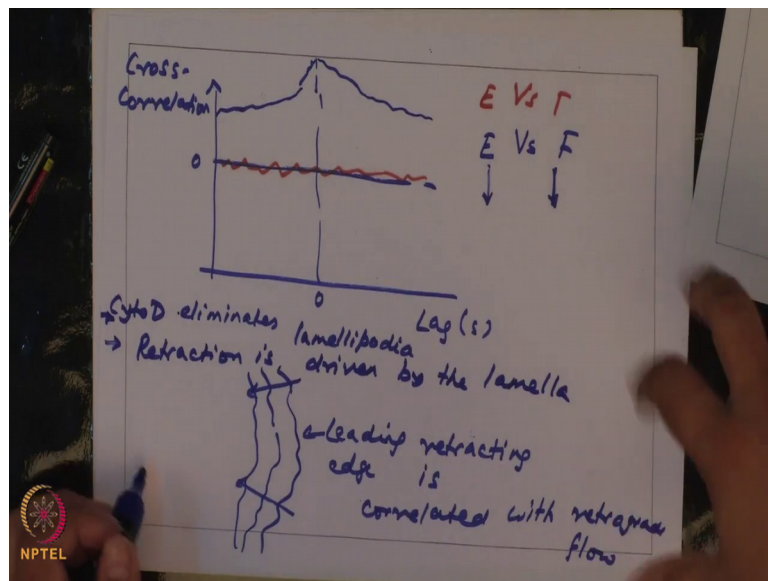 Cross-
Correlation
E Vs Γ
E Vs F
0
0
Lag (s)
→ CytoD eliminates lamellipodia
→ Retraction is driven by the lamella
← Leading retracting
edge is
correlated with retrograde
flow
NPTEL